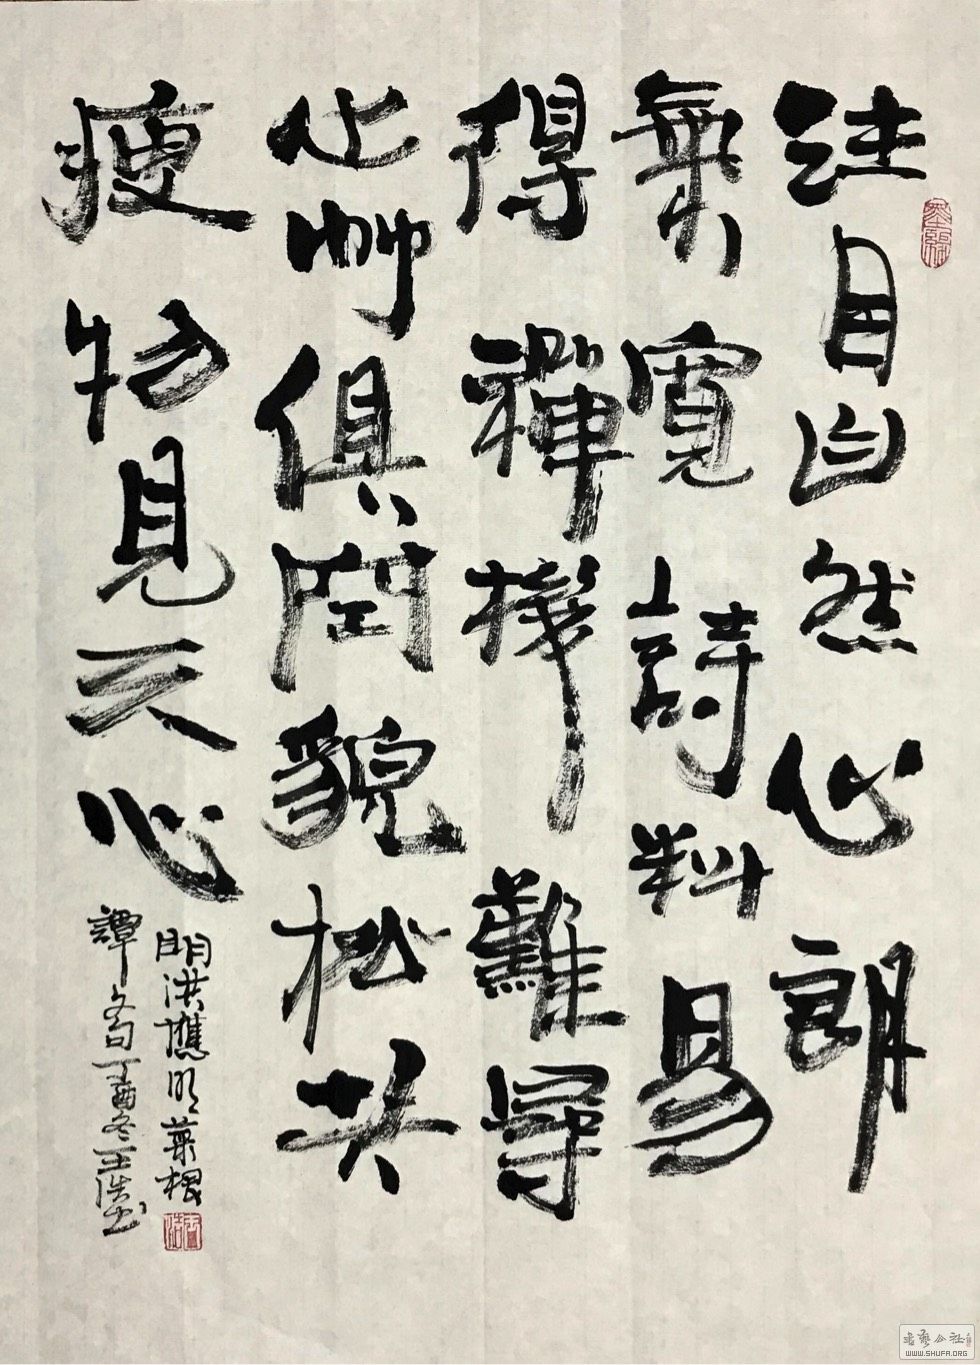 注目自然心朗
氣寬詩料易
得禪機難尋
心俱閏貌松共
瘦物見天心
明洪應明菜根
譚句丁酉冬王浩書
墨緣
書藝公社
WWW.SHUFA.ORG